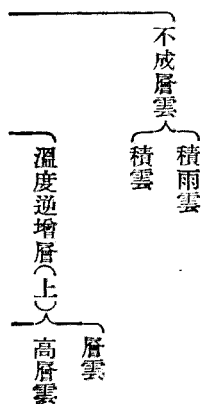 不成層雲
積雨雲
積雲
溫度逆增層(上)
層雲
高層雲